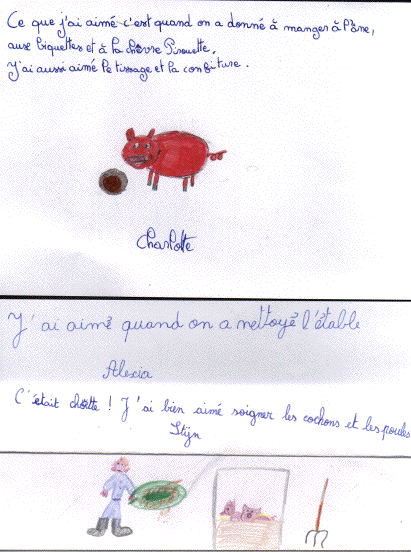 Ce que j'ai aimé c'est quand on a donné à manger à l'âne,
aux biquettes et à la chèvre Pirouette.
J'ai aussi aimé le tissage et la confiture.
Charlotte
J'ai aimé quand on a nettoyé l'étable
Alexia
C'était chouette ! J'ai bien aimé soigner les cochons et les poules
Stijn